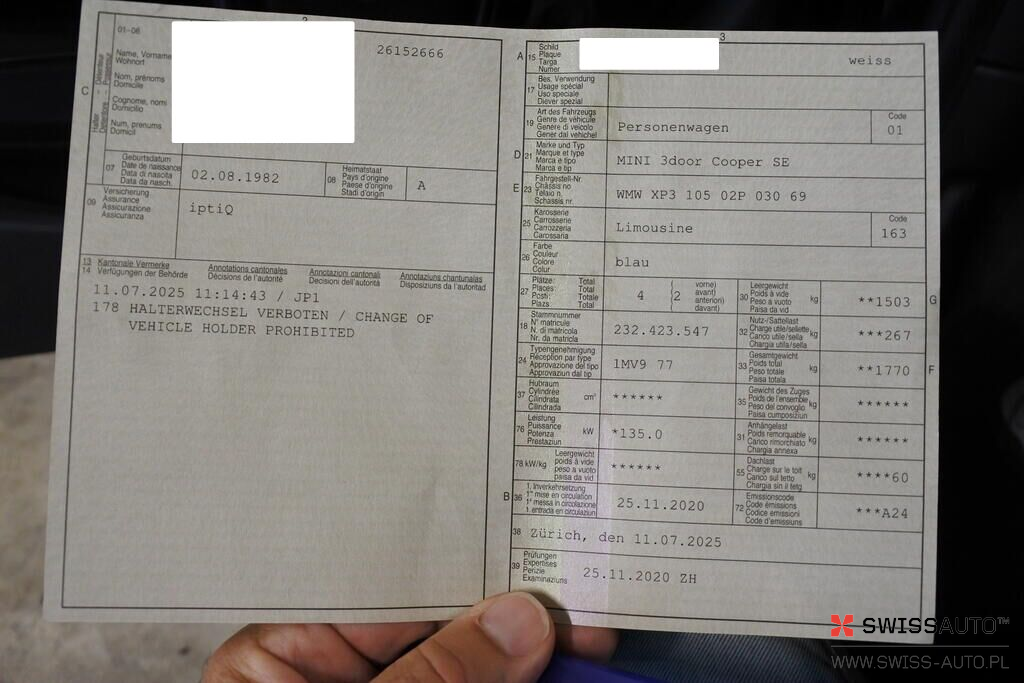 2
01-06
C
Halter
Détenteur
Detentore
Possessur
Name, Vorname
Wohnort
Nom, prénoms
Domicile
Cognome, nomi
Domicilio
Num, prenums
Domicil
26152666
07
Geburtsdatum
Date de naissance
Data di nascita
Data da nasch.
02.08.1982
08
Heimatstaat
Pays d'origine
Paese d'origine
Stadi d'origin
A
09
Versicherung
Assurance
Assicurazione
Assicuranza
iptiQ
13 Kantonale Vermerke
14 Verfügungen der Behörde
Annotations cantonales
Décisions de l'autorité
Annotazioni cantonali
Decisioni dell'autorità
Annotaziuns chantunalas
Disposiziuns da l'autoritad
11.07.2025 11:14:43 / JP1
178 HALTERWECHSEL VERBOTEN / CHANGE OF
VEHICLE HOLDER PROHIBITED
3
A 15
Schild
Plaque
Targa
Numer
weiss
17
Bes. Verwendung
Usage spécial
Uso speciale
Diever spezial
19
Art des Fahrzeugs
Genre de véhicule
Genere di veicolo
Gener dal vehichel
Personenwagen
Code
01
D 21
Marke und Typ
Marque et type
Marca e tipo
Marca e tip
MINI 3door Cooper SE
E 23
Fahrgestell-Nr.
Châssis no
Telaio n.
Schassis nr.
WMW XP3 105 02P 030 69
25
Karosserie
Carrosserie
Carrozzeria
Carossaria
Limousine
Code
163
26
Farbe
Couleur
Colore
Colur
blau
27
Plätze: Total
Places: Total
Posti: Totale
Plazs: Total
4 (2
vorne)
avant)
anteriori)
davant)
30
Leergewicht
Poids à vide
Peso a vuoto
Paisa da vid
kg
**1503
G
18
Stammnummer
N° matricule
N. di matricola
Nr. da matricla
232.423.547
32
Nutz-/Sattellast
Charge utile/sellette
Carico utile/sella
Chargia utila/sella
kg
***267
24
Typengenehmigung
Réception par type
Approvazione del tipo
Approvaziun dal tip
1MV9 77
33
Gesamtgewicht
Poids total
Peso totale
Paisa totala
kg
**1770
F
37
Hubraum
Cylindrée
Cilindrata
Cilindrada
cm³
******
35
Gewicht des Zuges
Poids de l'ensemble
Peso del convoglio
Paisa cumposiziun
kg
******
76
Leistung
Puissance
Potenza
Prestaziun
kW
*135.0
31
Anhängelast
Poids remorquable
Carico rimorchiato
Chargia annexa
kg
******
78 kW/kg
Leergewicht
poids à vide
peso a vuoto
paisa da vid
******
55
Dachlast
Charge sur le toit
Carico sul tetto
Chargia sin il tetg
kg
****60
B 36
1. Inverkehrsetzung
1re mise en circulation
1a messa in circolazione
1. entrada en circulaziun
25.11.2020
72
Emissionscode
Code émissions
Codice emissioni
Code d'emissiuns
***A24
38
Zürich, den 11.07.2025
39
Prüfungen
Expertises
Perizie
Examinaziuns
25.11.2020 ZH
SWISSAUTO™
WWW.SWISS-AUTO.PL